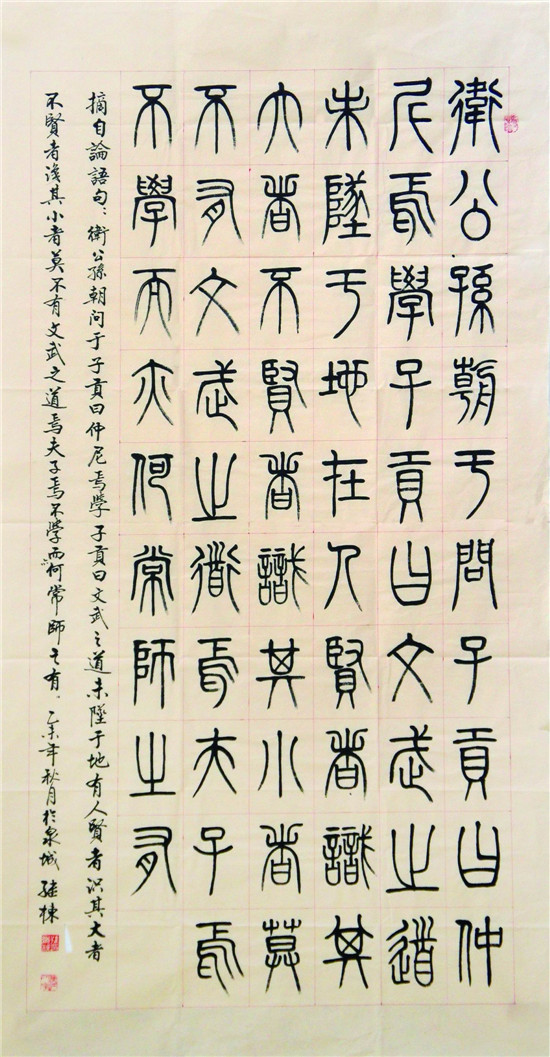 衛公孫朝于問子貢曰仲
尼焉學子貢曰文武之道
未墜于地在人賢者識其
大者不賢者識其小者莫
不有文武之道焉夫子焉
不學而亦何常師之有
摘自論語句：衛公孫朝问于子貢曰仲尼焉學子貢曰文武之道未墜于地有人賢者识其大者
不賢者淺其小者莫不有文武之道焉夫子焉不学而何常師之有。乙未年秋月於泉城 继棟